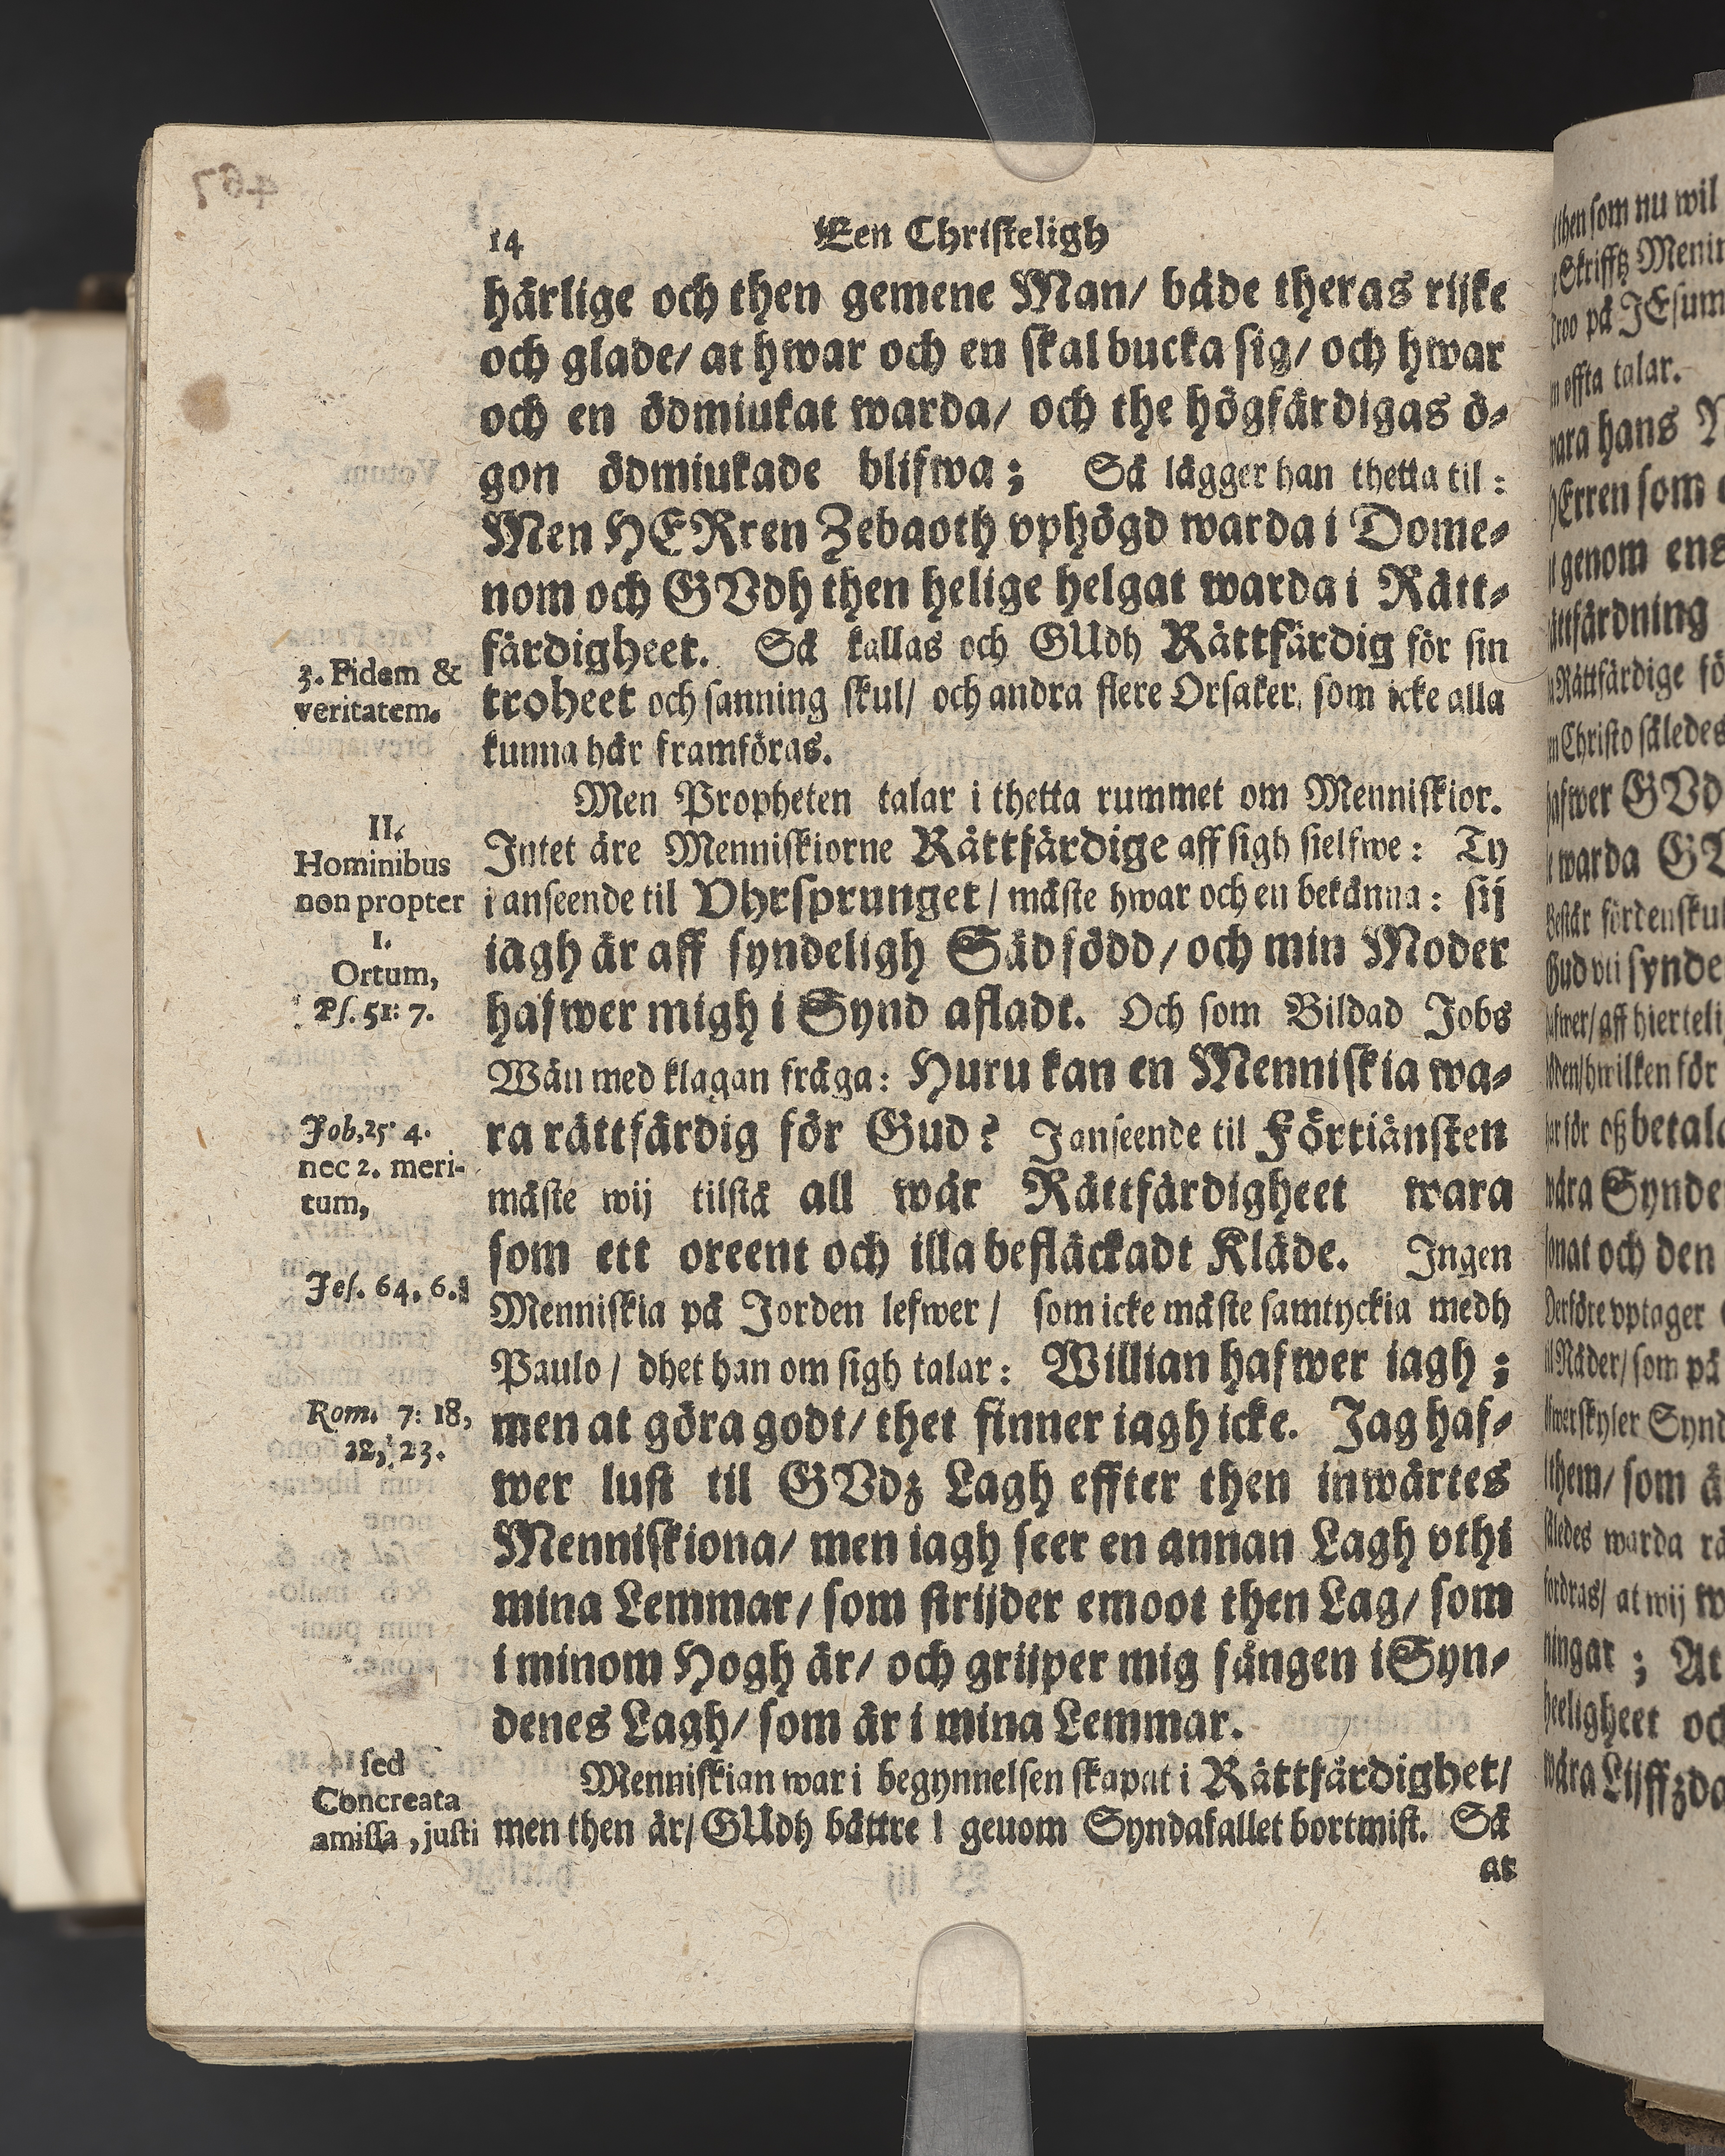 14 Een Christeligh
härlige och then gemene Man/ både theras rijke
och glade/ at hwar och en skal bucka sig/ och hwar
och en ödmiukat warda/ och the högfärdigas ö-
gon ödmiukade blifwa; Så lägger han thetta til:
Men HERren Zebaoth vphögd warda i Dome-
nom och GVdh then helige helgat warda i Rätt-
färdigheet. Så kallas och GUdh Rättfärdig för sin
3. Fidem &
troheet och sanning skul/ och andra flere Orsaker, som icke alla
veritatem.
kunna här framföras.
Men Propheten talar i thetta rummet om Menniskior.
II.
Intet äre Menniskiorne Rättfärdige aff sigh sielfwe: Ty
Hominibus
non propter
i anseende til Vhrsprunget/ måste hwar och en bekänna: sij
1.
iagh är aff syndeligh Säd född/ och min Moder
Ortum,
Ps. 51: 7.
hafwer migh i Synd afladt. Och som Bildad Jobs
Wän med klagan fråga: Huru kan en Menniskia wa-
Job, 25: 4.
ra rättfärdig för Gud? I anseende til Förtiänsten
nec 2. meri-
tum,
måste wij tilstå all wår Rättfärdigheet wara
som ett oreent och illa befläckadt Kläde. Ingen
Jes. 64. 6.
Menniskia på Jorden lefwer/ som icke måste samtyckia medh
Paulo/ dhet han om sigh talar: Willian hafwer iagh;
Rom. 7: 18,
men at göra godt/ thet finner iagh icke. Jag haf-
22, 23.
wer lust til GVdz Lagh effter then inwärtes
Menniskiona/ men iagh seer en annan Lagh vthi
mina Lemmar/ som strijder emoot then Lag/ som
i minom Hogh är/ och grijper mig fången i Syn-
denes Lagh/ som är i mina Lemmar.
sed
Menniskian war i begynnelsen skapat i Rättfärdighet/
Concreata
amissa, justi
men then är/ GUdh bättre! genom Syndafallet bortmist. Så
ar
then som nu wil
Skrifftz
på JEsum
effta talar.
hans
som
genom ens
Rättfärdige
Christo således
GVd
warda
synde
hwilken för
för oss betala
wåra Synde
och den
vptager
som på
them/ som
warda
at wij
At